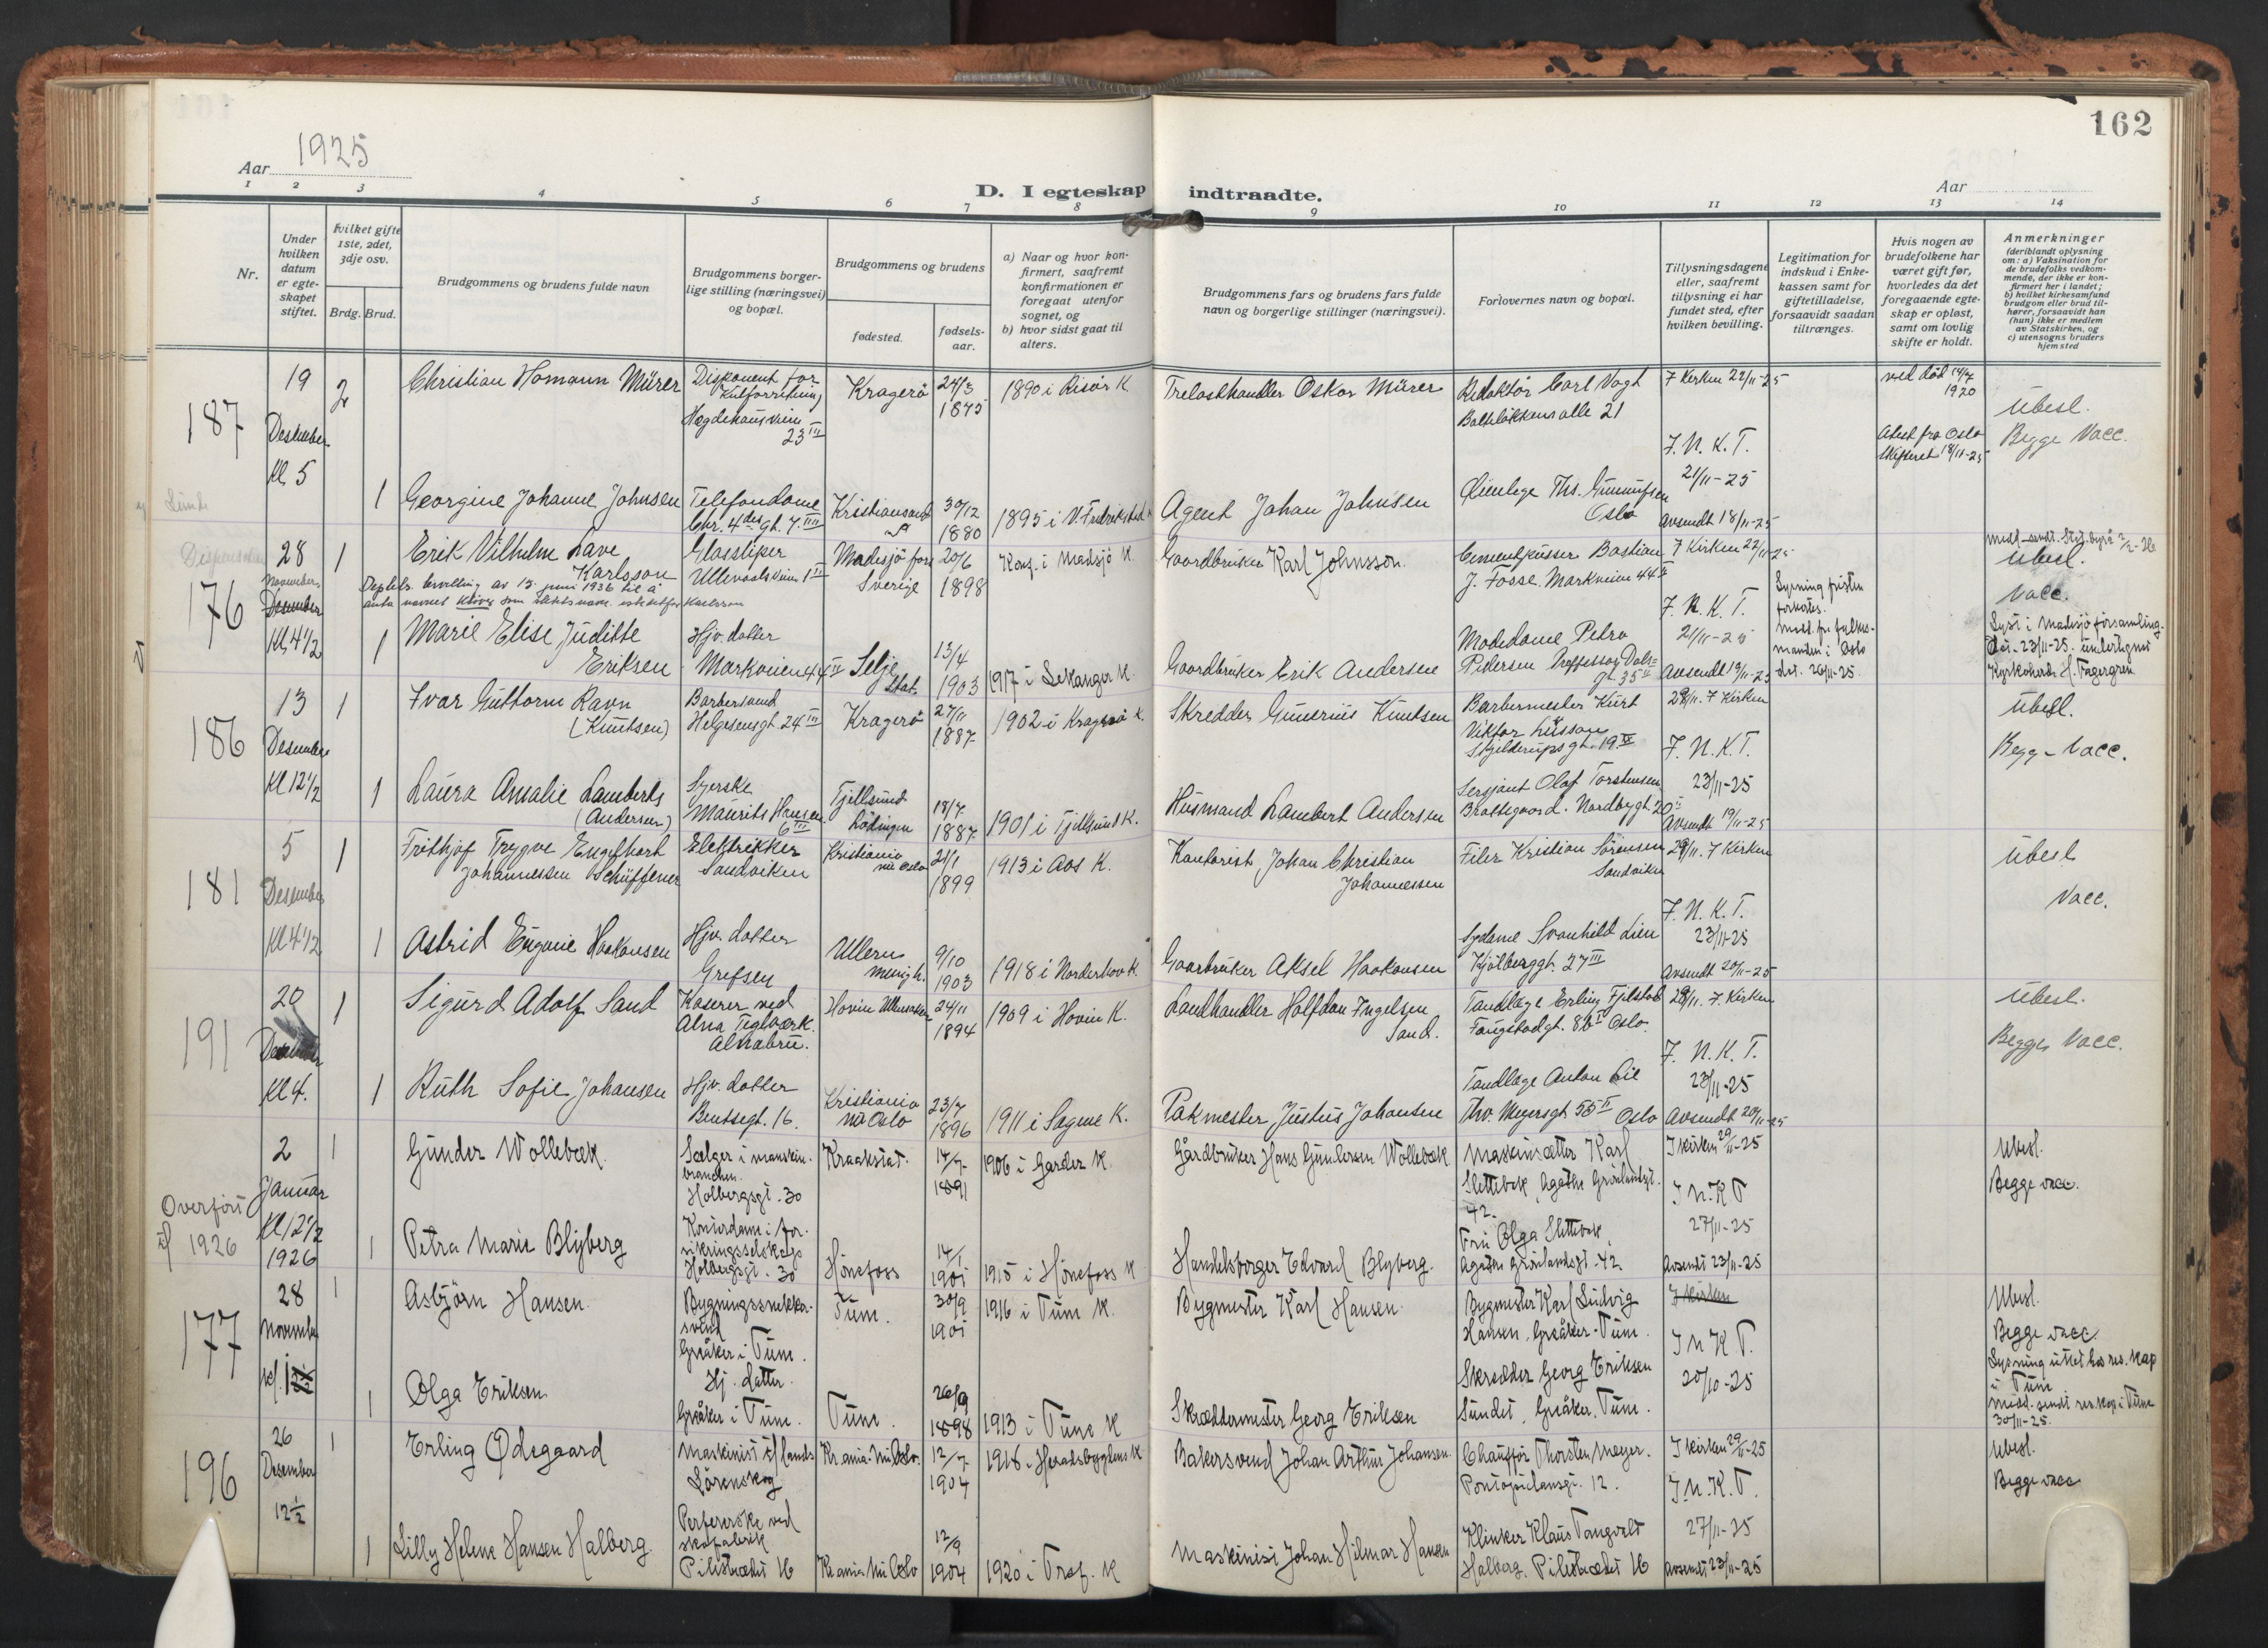 162
Aar 1925
Aar
D. I egteskap indtraadte.
1 2 3 4 5 6 7 8 9 10 11 12 13 14
Nr.
Under hvilken datum er egteskapet stiftet.
hvilket gifte 1ste, 2det, 3dje osv.
Brdg. Brud.
Brudgommens og brudens fulde navn
Brudgommens borgerlige stilling (næringsvei) og bopæl.
Brudgommens og brudens
fødested.
fødselsaar.
a) Naar og hvor konfirmert, saafremt konfirmationen er foregaat utenfor sognet, og
b) hvor sidst gaat til alters.
Brudgommens fars og brudens fars fulde navn og borgerlige stillinger (næringsvei).
Forlovernes navn og bopæl.
Tillysningsdagene eller, saafremt tillysning ei har fundet sted, efter hvilken bevilling.
Legitimation for indskud i Enkekassen samt for giftetilladelse, forsaavidt saadan tiltrænges.
Hvis nogen av brudefolkene har været gift før, hvorledes da det foregaaende egteskap er opløst, samt om lovlig skifte er holdt.
Anmerkninger
(deriblandt oplysning om: a) Vaksination for de brudefolks vedkommende, der ikke er konfirmert her i landet; b) hvilket kirkesamfund brudgom eller brud tilhører, forsaavidt han (hun) ikke er medlem av Statskirken, og c) utensogns bruders hjemsted
187
19 Desember Kl. 5
2 Christian Homann Mürer
Hegdehausveien 23 III
Kragerø 24/3 1875
1890 i Risør K.
Trelasthandler Oskar Mürer
Redaktør Carl Vogt
Balsløkkens alle 21
I Kirken 22/11-25
ved død 14/7 1920
Ubesl.
Begge Vacc.
Attest fra Oslo Skifteret 18/11-25
I. N. K. T.
21/11-25
Avsendt 18/11-25
1 Georgine Johanne Johnsen
Telefondame
Chr. 4des gt. 7 IIII
Kristiansand 30/12 1880
1895 i V. Fredrikstad K
Agent Johan Johnsen
Oslo
176
28 November Desember Kl. 4 1/2
1 Erik Vilhelm Lave Karlsson
Glassliper
Ullevaalsveien 1 II
Sverige 20/6 1898
Konf. i Madsjö K.
Gaardbruker Karl Johnsson.
Cementpusser Bastian J. Fosse. Markveien 44 II
I Kirken 22/11-25
I. N. K. T.
21/11-25
Avsendt 19/11-25
Ubesl.
Vacc.
1 Marie Elise Juditte Eriksen
Hjv. datter
Markveien 44 II
Selje Stat. 13/4 1903
1917 i Leikanger K.
Gaardbruker Erik Andersen
Modedame Petra Pedersen
186
13 Desember Kl 12 1/2
1 Ivar Guttorm Ravn (Knutsen)
Barbersvend
Helgesensgt. 24 III
Kragerø 27/11 1887
1902 i Kragerø K.
Skredder Gunerius Knutsen
Barbermester Kurt Viktor Lüsson
Stjilderupsgt. 19 IV
29/11. I Kirken
I. N. K. T.
23/11-25
Avsendt 19/11-25
Ubesl.
Begge Vacc.
1 Laura Amalie Lamberts (Andersen)
Syerske
Maurits Hansen 6 III
Tjellsund Lødingen 18/7 1887
1901 i Tjellsund K.
Husmand Lambert Andersen
Sersjant Olaf Torstensen
Brattegaard. Nordbygt. 20 II
181
5 Desember Kl 4 1/2
1 Frithjof Trygve Engelhart Johannessen Schüffener
Elektrikker
Sandviken
Kristiania nu Oslo 21/1 1899
1913 i Aos K.
Kontorist Johan Christian Johannessen
Filer Kristian Sørensen Sandviken
29/11. I Kirken
I. N. K. T.
23/11-25
Avsendt 20/11-25
Ubesl
Vacc.
1 Astrid Eugenie Haakonsen
Hjv. datter
Grefsen
Ullern menigh. 9/10 1903
1918 i Norderhov K.
Gaarbruker Aksel Haakonsen
Sydame Svanhild Lien
Kjølberggt. 27 III
191
20 Desember Kl 4.
1 Sigurd Adolf Sand
Kaserer ved Alna Teglværk. Alnabru.
Hovin Ullensaker 24/11 1894
1909 i Hovin K.
Landhandler Halfdan Ingelsen Sand.
Tandlæge Erling Fjilstad
Faugstadgt. 8b I Oslo.
29/11. I. Kirken
I. N. K. T.
23/11-25
Avsendt 20/11-25
Ubesl.
Begge Vacc.
1 Ruth Sofie Johansen
Hjv. datter
Bentsegt. 16.
Kristiania nu Oslo 23/7 1896
1911 i Sagene K.
Pakmester Justus Johansen
Tandlæge Anton Lie
Thv. Meyersgt 55 II Oslo
Overført til 1926
2 Januar Kl 12 1/2 1926
1 Gunder Wollebæk.
Sælger i manskinbranchen.
Holbergsgt. 30
Kraakstat. 14/7 1891
1906 i Garder K.
Gårdbruker Hans Gundersen Wollebæk
Maskinsætter Karl Slettebek, Agathe Grønlandsgt. 42.
I kirken 29/11-25
I N. K T
27/11-25
Avsendt 23/11-25
Ubesl.
Begge vacc.
1 Petra Marie Blyberg
Kontordame i forsikringsselskaps
Holbergsgt. 30
Hønefoss 14/1 1901
1915 i Hønefoss K
Handelsborger Edvard Blyberg.
Fru Olga Slettebek, Agathe Grønlandsgt. 42
177
28 November kl. 1
1 Asbjørn Hansen.
Bygningssnekkersvend
Greåker i Tune.
Tune. 30/9 1901
1916 i Tune K.
Bygmester Karl Hansen.
Bygmester Karl Ludvig Hansen, Greåker. Tune.
I kirken
I N K T.
20/10-25
Ubesl.
Begge vacc.
Lysning uttet hos res. kap i Tune
Medd. sendt res. kap. i Tune 30/11-25.
1 Olga Eriksen
Hj. datter.
Greåker i Tune.
Tune. 26/9 1898
1913 i Tune K
Skræddermester Georg Eriksen
Skrædder Georg Eriksen
Sundet, Greåker. Tune.
196
26 Desember 12 1/2
1 Erling Ødegaard
Maskinist
Lørenskog
Kr.ania. nu Oslo. 12/7 1904
Bakersvend Johan Arthur Johansen.
Chauffør Thorsten Meyer.
Pontoppidansgt. 12.
I kirken 29/11-25
I. N. K. T.
27/11-25
Avsendt 23/11-25
Ubesl.
Begge vacc
1 Lilly Helene Hansen Halberg.
skofabrik
Pilestrædet 16
Kr.ania. nu Oslo 12/9 1904
1920 i Tref. K
Maskinist Johan Hilmar Hansen
Klinker Klaus Tangvald Halberg. Pilestrædet 16